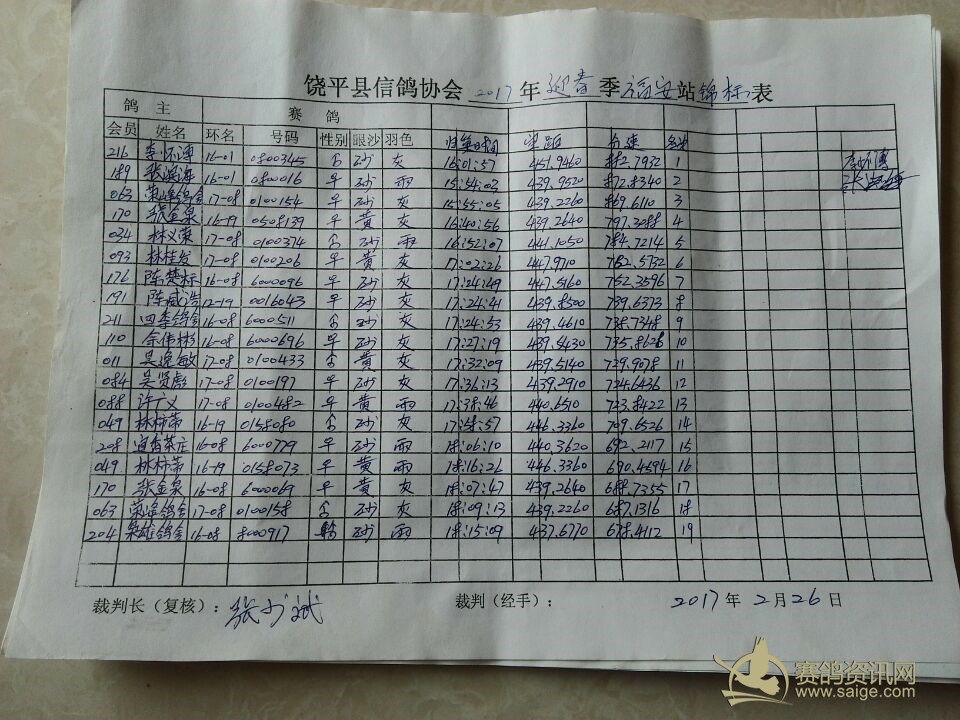 饶平县信鸽协会 2017 年 迎春 季 福安 站 锦标 表
鸽 主 赛 鸽
会员 姓名 环名 号码 性别 眼沙 羽色 归巢时间 空距 分速 名次
216 李怀潭 16-01 0800345 ♂ 砂 灰 16:01:57 451.9460 882.7932 1
189 16-01 0800016 早 砂 雨 15:54:02 439.9520 872.8340 2
063 17-08 0100154 早 砂 灰 15:55:05 439.2260 869.6110 3
170 张金泉 16-19 0508139 早 黄 灰 16:40:56 439.2640 797.3288 4
034 林义荣 17-08 0100374 ♂ 砂 雨 16:52:07 441.1050 784.7214 5
093 林桂发 17-08 0100206 早 黄 灰 17:02:26 447.9710 762.5732 6
176 陈楚标 16-08 6000096 早 砂 灰 17:24:49 447.5160 752.3596 7
191 陈威浩 12-19 0016043 早 砂 灰 17:24:41 439.8500 739.6373 8
211 四季鸽舍 16-08 6000511 ♂ 砂 灰 17:24:53 439.4610 738.7348 9
110 余伟彬 16-08 6000696 早 砂 灰 17:27:19 439.5430 735.8626 10
011 吴逸敏 17-08 0100433 ♂ 黄 灰 17:32:09 439.5140 729.9078 11
084 吴贤彪 17-08 0100197 早 砂 灰 17:36:13 439.2910 724.6436 12
088 许广义 17-08 0100482 早 黄 雨 17:38:46 440.6510 723.8422 13
049 林柿蒂 16-19 0158080 ♂ 砂 灰 17:58:57 446.3360 709.6526 14
208 宜香茶庄 16-08 6000779 早 砂 雨 18:06:10 440.3620 692.2117 15
049 林柿蒂 16-19 0158073 早 黄 雨 18:16:26 446.3360 690.4594 16
170 张金泉 16-08 6000069 早 黄 灰 18:07:47 439.2640 688.7355 17
063 17-08 0100158 ♂ 砂 灰 18:09:13 439.2260 687.1316 18
204 英雄鸽舍 16-08 8000917 砂 雨 18:15:09 437.6770 678.4112 19
裁判长（复核）： 裁判（经手）： 2017 年 2 月 26 日
赛鸽资讯网
www.saige.com